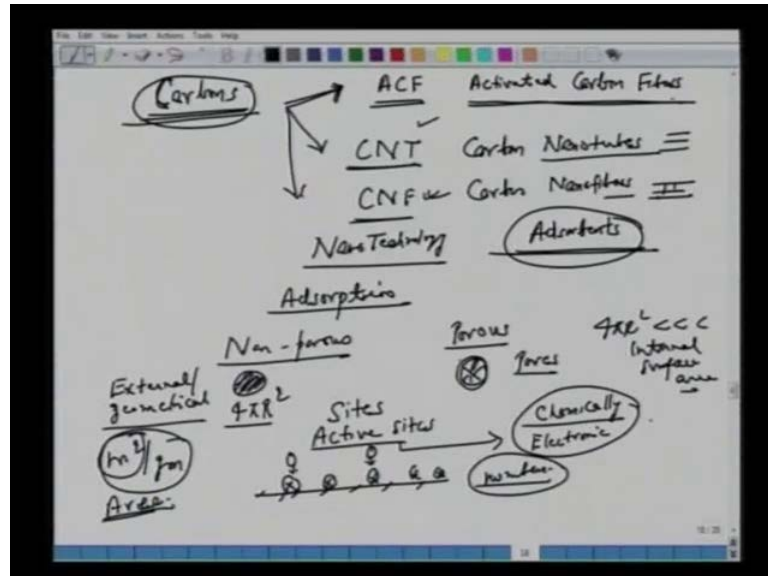 File Edit View Insert Actions Tools Help
Carbons
ACF Activated Carbon Fibers
CNT Carbon Nanotubes
CNF Carbon Nanofibers
NanoTechnology Adsorbents
Adsorption
Non-porous Porous 4πR² <<<
Pores Internal surface area
External/ geometrical 4πR²
Sites
Active sites
Chemically
Electronic
m²/gm number
Area
18